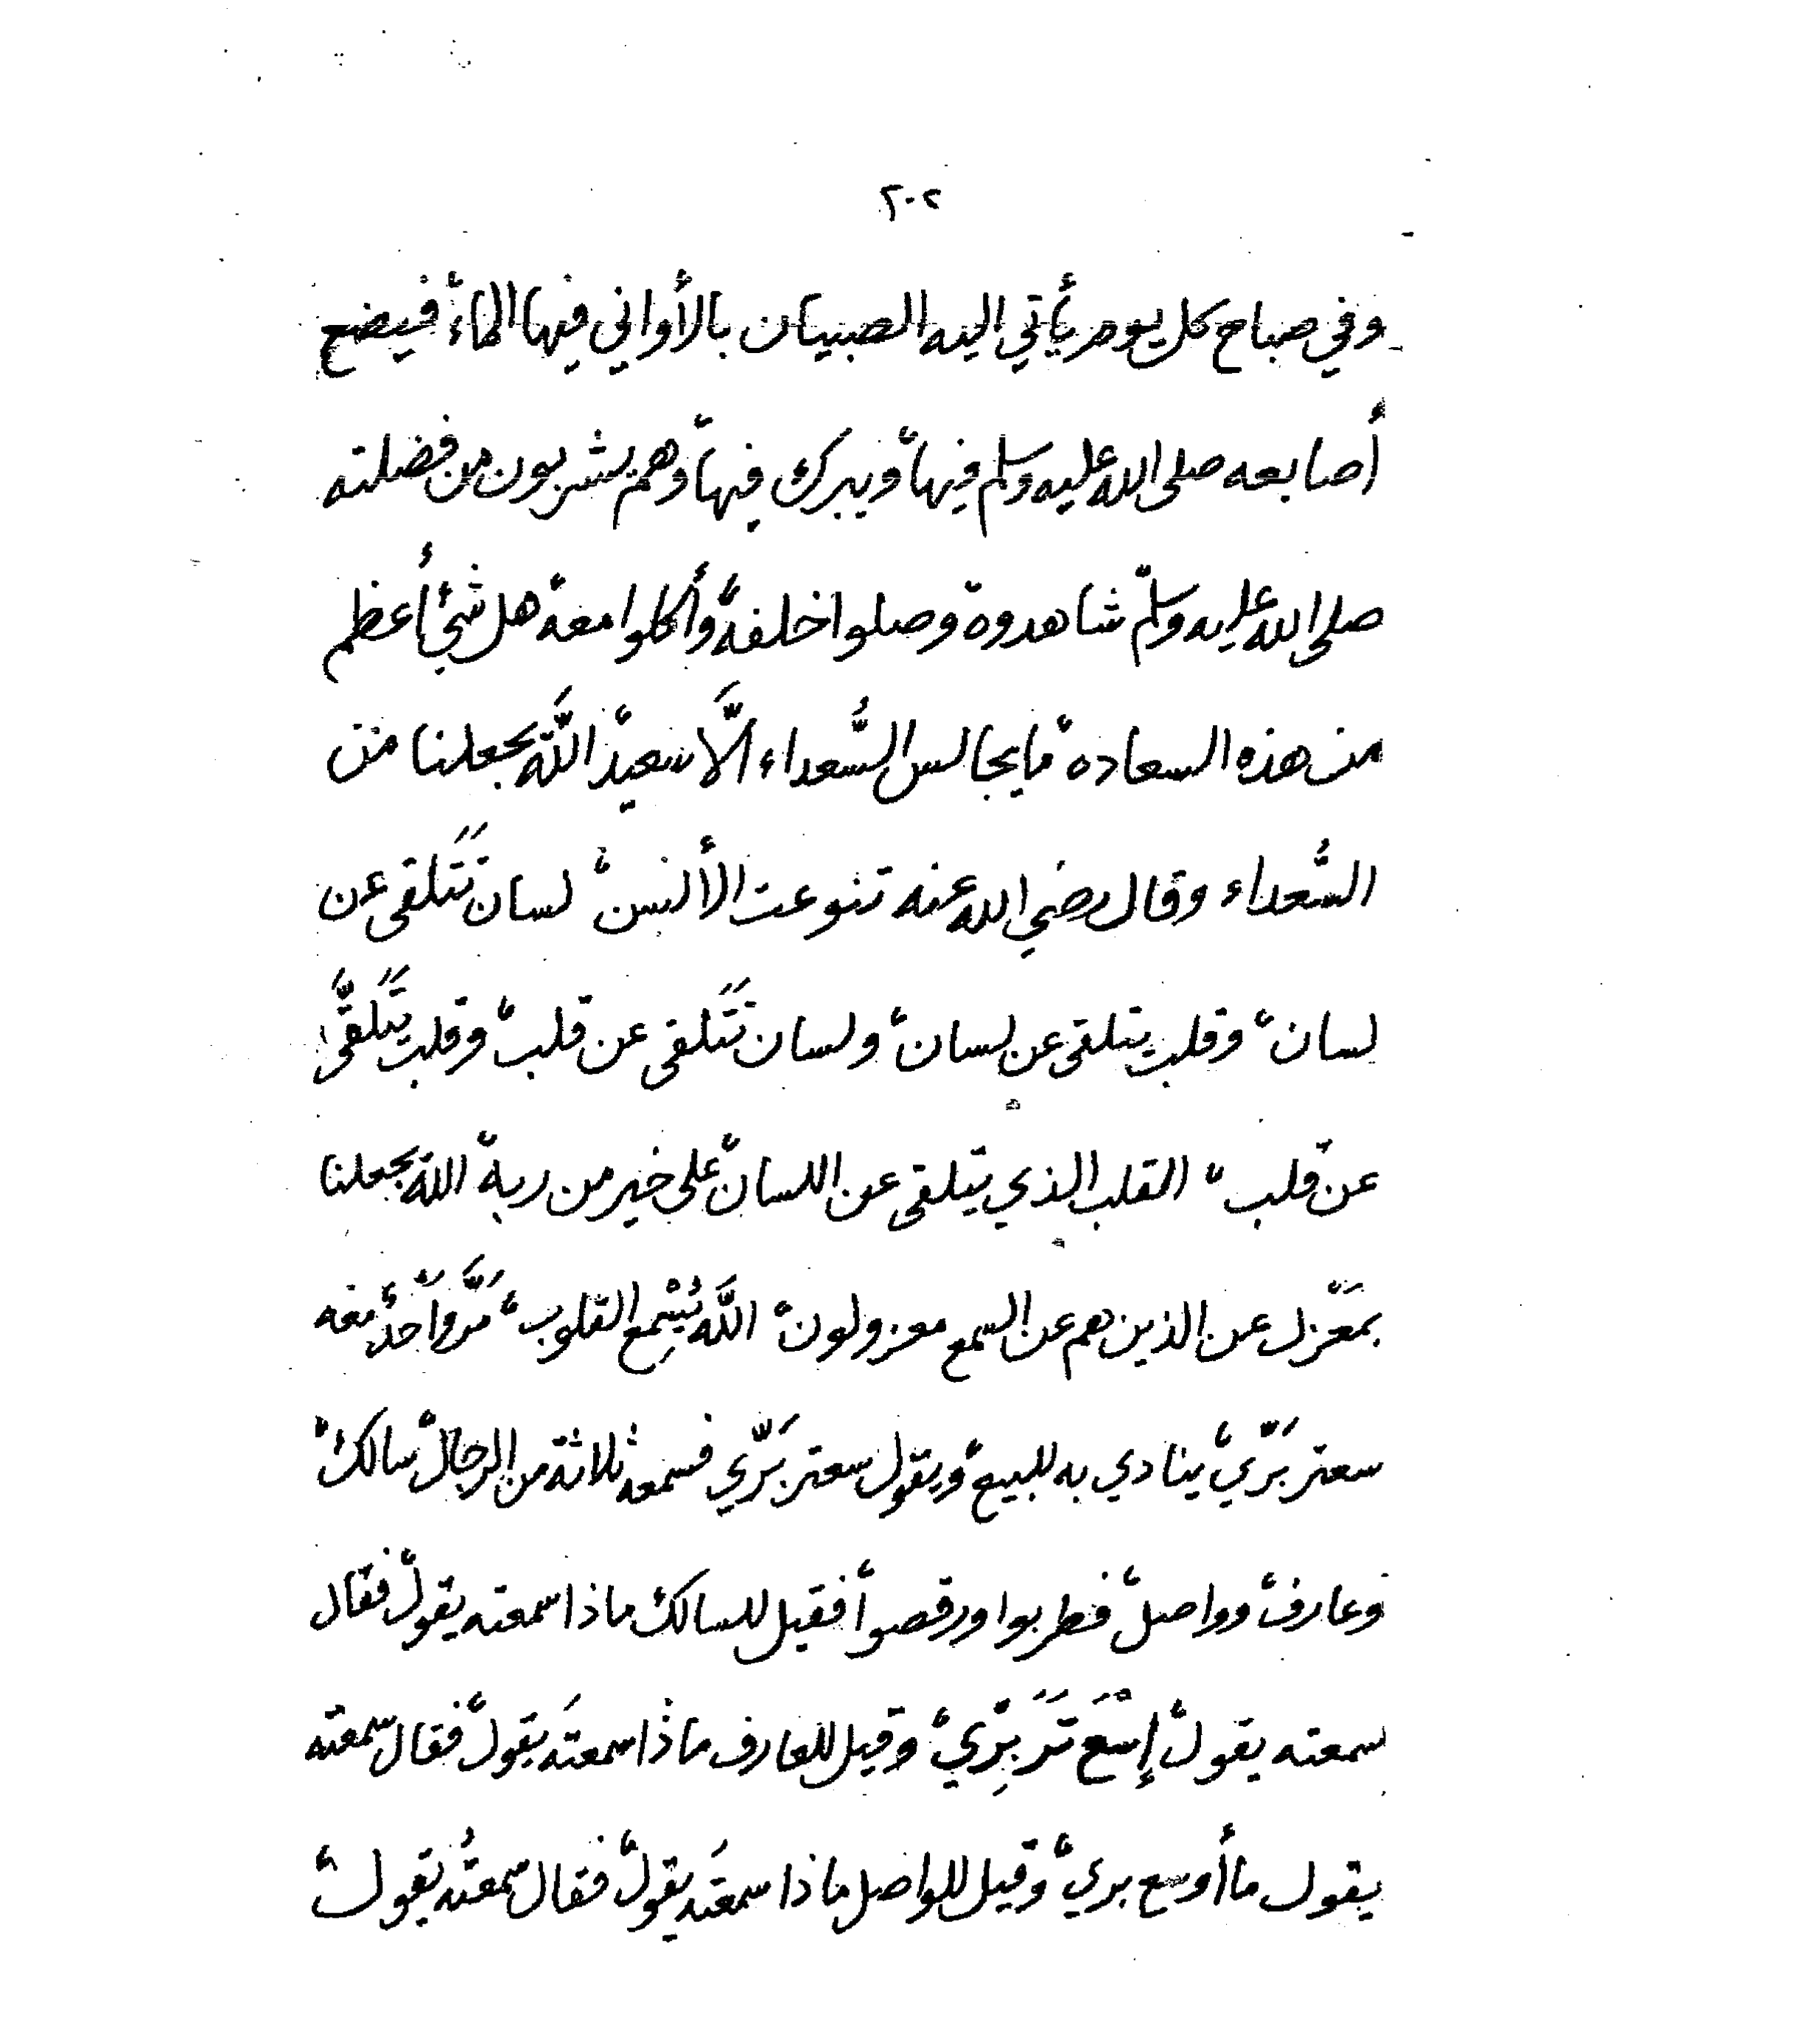 ٢٠٢
وفي صباح كل يوم يأتي اليه الصبيان بالأواني فيها الماء، فيضع
أصابعه صلى الله عليه وسلم فيها، ويبرك فيها، وهم يشربون من فضلته
صلى الله عليه وسلم شاهدوه وصلوا خلفه، وأكلوا معه، هل شيئ أعظم
من هذه السعاده، ما يجالس السُّعداء الَّا سعيد، اللَّه يجعلنا من
السُّعداء وقال رضي الله عنه تنوعت الألسن، لسان تَتَلقى عن
لسان، وقلب يتلقى عن لسان، ولسان تَتَلقى عن قلب، وقلب يَتَلقَّى
عن قلب، القلب الذي يتلقى عن اللسان، على خير من ربه، الله يجعلنا
بمَعْزل عن الذين هم عن السمع معزولون، اللَّه يُسْمِع القلوب، مَرَّ واَحدْ معه
سعتر بَرّي، ينادي به للبيع، ويقول سعتر بَرّي فسمعه ثلاثة من الرجال، سالك،
وعارف، وواصل، فطربوا ورقصوا، فقيل للسالك ماذا سمعته يقول، فقال
سمعته يقول، إِسْعَ تَرَ بِرّي، وقيل للعارف ماذا سمعتَه يقول، فقال سمعته
يقول ما أوسع بري، وقيل للواصل ماذا سمعتَه يقول، فقال سمعتُه يقول،